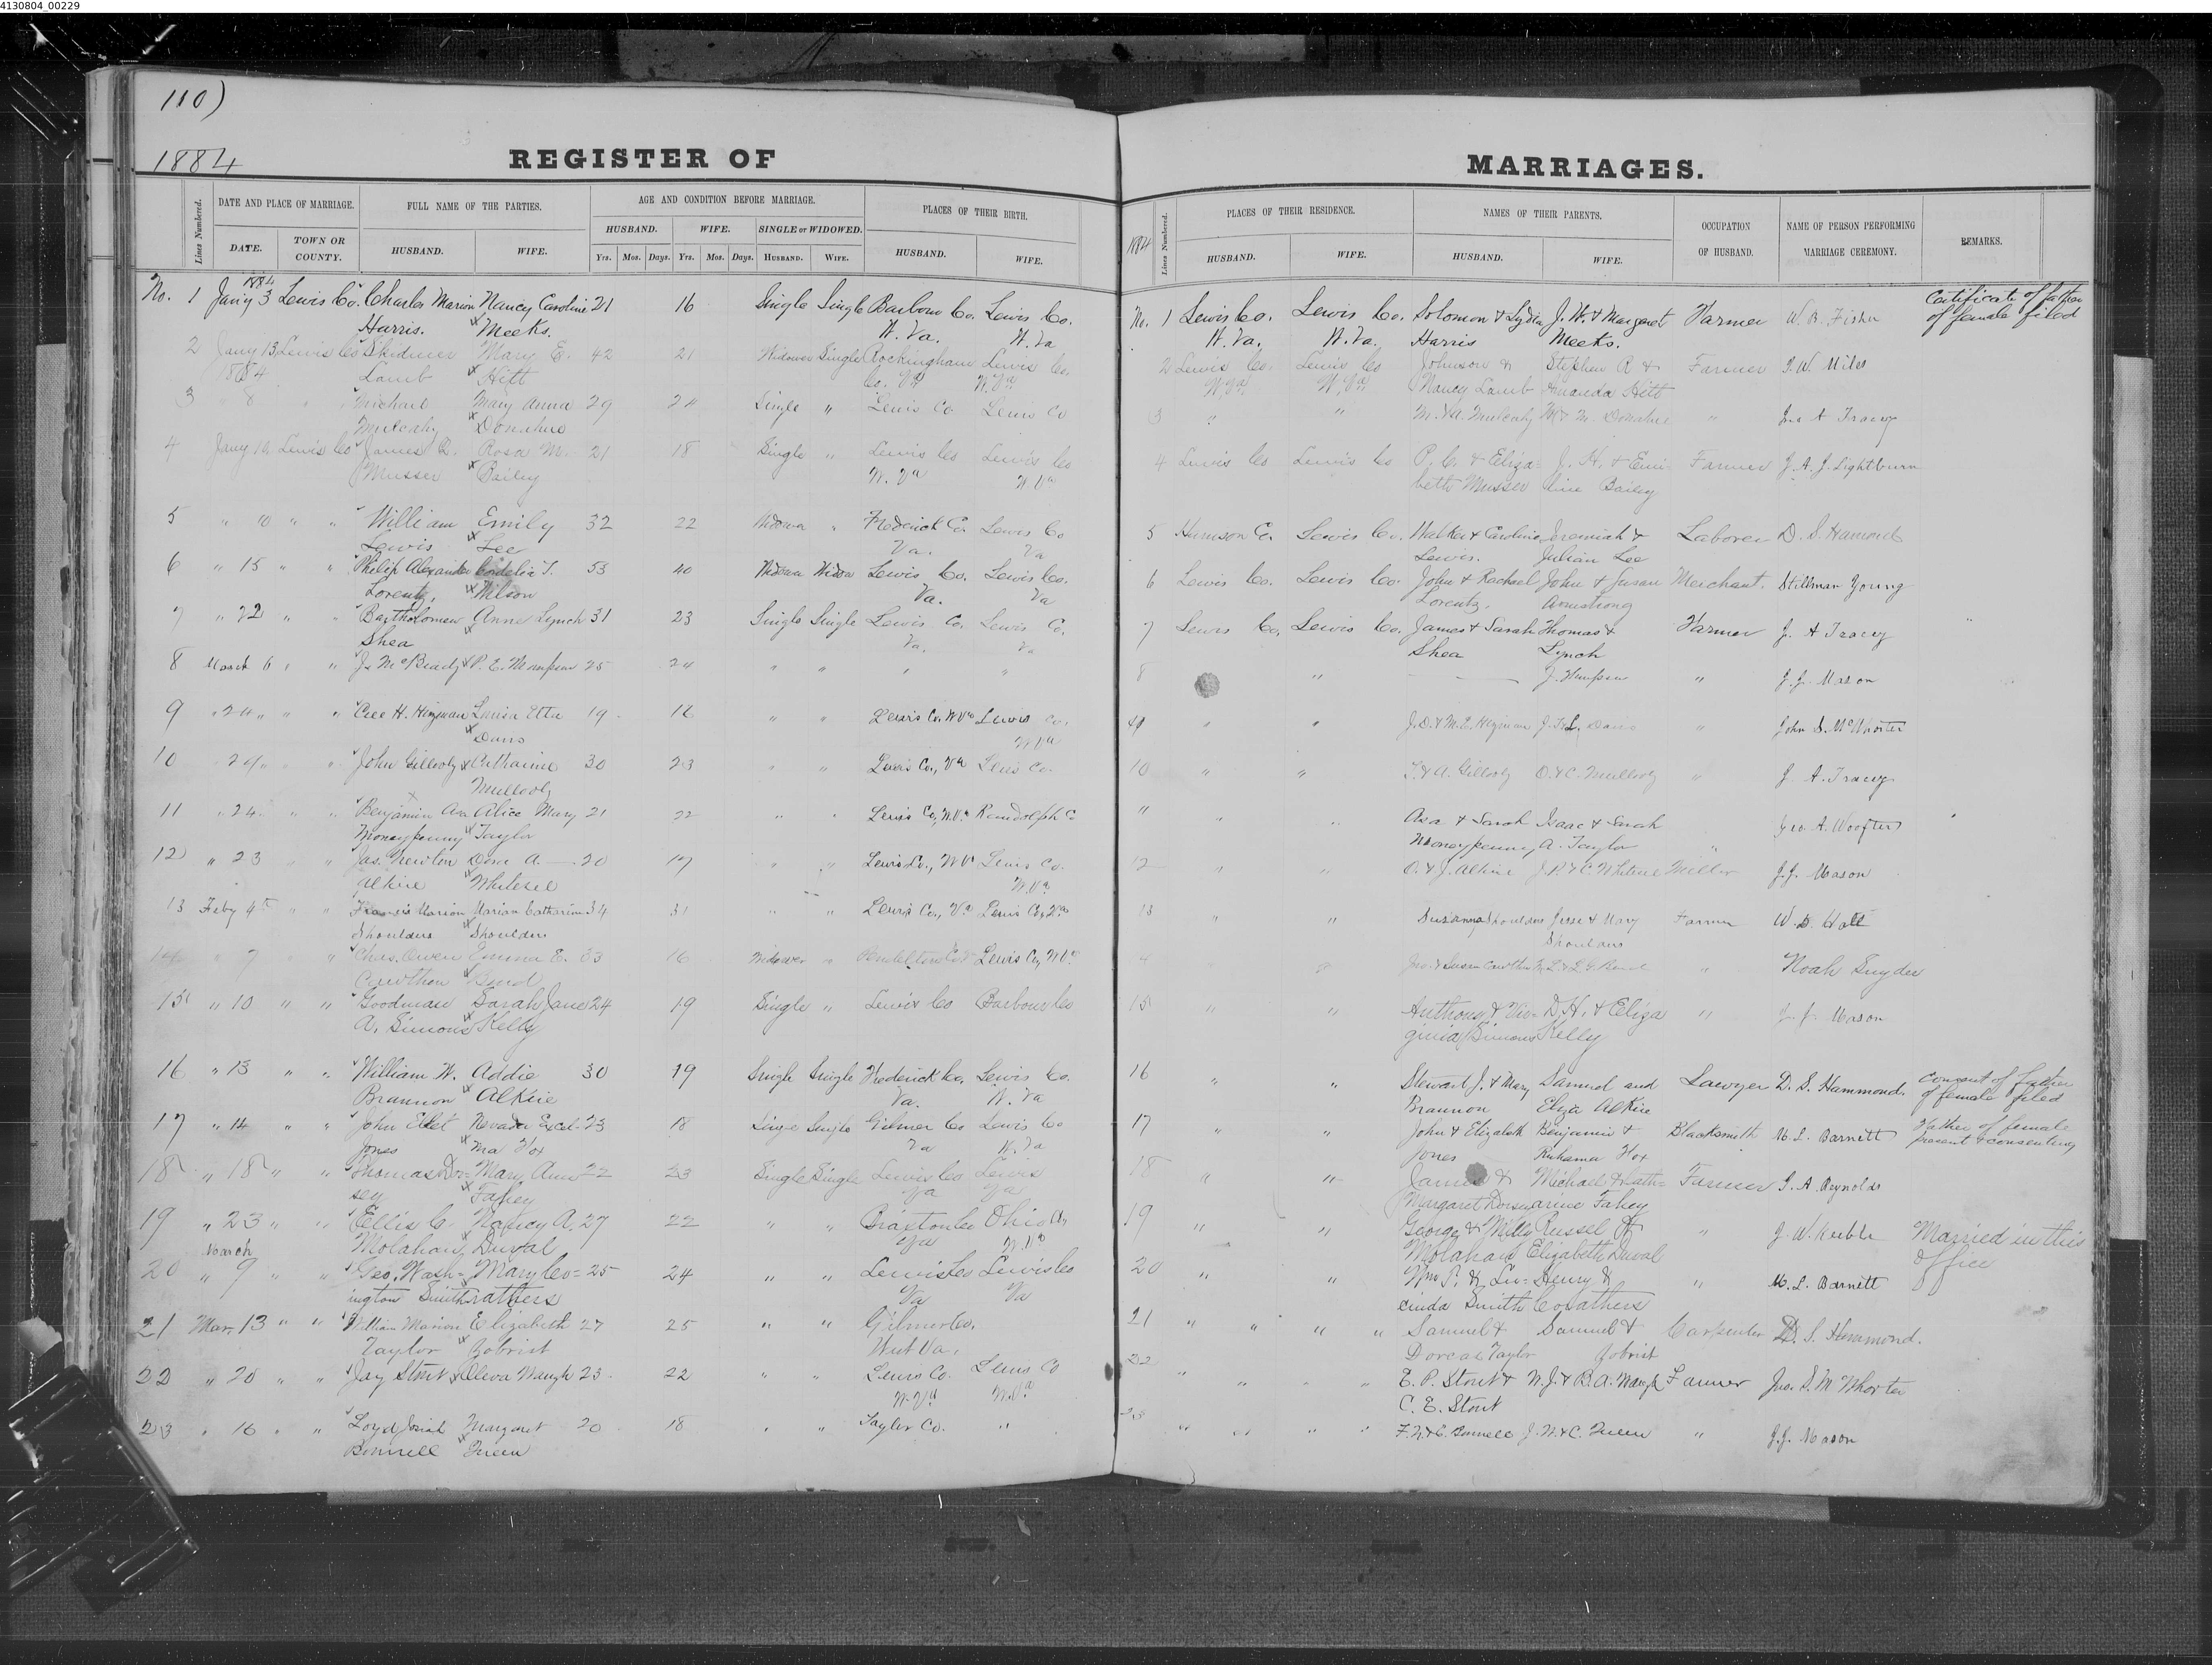 4130804_00229
110)
1884
REGISTER OF
Lines Numbered.
DATE AND PLACE OF MARRIAGE.
FULL NAME OF THE PARTIES.
AGE AND CONDITION BEFORE MARRIAGE.
PLACES OF THEIR BIRTH.
HUSBAND. WIFE. SINGLE or WIDOWED.
DATE. TOWN OR COUNTY. HUSBAND. WIFE. Yrs. Mos. Days. Yrs. Mos. Days. HUSBAND. WIFE. HUSBAND. WIFE.
1884
No. 1 Jan'y 3 Lewis Co. Charles Marion Nancy Caroline 21 16 Single Single Barbour Co. Lewis Co.
Harris. Meeks. W. Va. W. Va
2 Jany 13 Lewis Co Skidmer Mary E. 42 21 Widower Single Rockingham Lewis Co.
1884 Lamb Hitt Co. Va W. Va
3 " 8 " " Michael Mary Anna 29 24 Single " Lewis Co Lewis Co
Mulcahy Donahue
4 Jany Lewis Co James R. Rosa M. 21 18 Single " Lewis Co Lewis Co
Musser Bailey W. Va W. Va
5 " 10 " " William Emily 32 22 " Frederick Co. Lewis Co
Lewis Lee Va. Va
6 " 15 " " Philip Alexander Cordelia T. 53 40 Widower Widow Lewis Co. Lewis Co.
Lorentz, Wilson Va. Va
7 " 22 " " Bartholomew Anne Lynch 31 23 Single Single Lewis Co. Lewis Co.
Shea Va. Va
8 March 6 " " Js. McBrady P. E. Thompson 25 24 " " " "
9 " 24 " " " H. Hinzman Luisa Etta 19 16 " " Lewis Co. W Va Lewis Co.
Davis W Va
10 " 24 " " John Gillooly Catharine 30 23 " " Lewis Co., Va Lewis Co.
Mullooly
11 " 24 " " Benjamin Asa Alice Mary 21 22 " " Lewis Co, W. Va Randolph C
Moneypenny Taylor
12 " 23 " " Jas. Newlon Dora A. 20 17 " " Lewis Co., W Va Lewis Co.
Alkire Whitesel W. Va
13 Feby 4th " " Francis Marion Marion Catharine 34 31 " " Lewis Co., Va Lewis Co, Va
Shoulders Shoulders
14 " 7 " " Chas. Owen Emma E. 33 16 Widower " Pendleton Co Va Lewis Co, W Va
Cawthon Bend
15 " 10 " " Goodman Sarah Jane 24 19 Single " Lewis Co Barbour Co
A. Simons Kelly
16 " 13 " " William W. Addie 30 19 Single Single Frederick Co. Lewis Co.
Brannon Alkire Va. W. Va
17 " 14 " " John Ellet Nevada Excel- 23 18 Single Single Gilmer Co Lewis Co
Jones Fox Va W. Va
18 " 18 " " Thomas Dor= Mary Ann 22 23 Single Single Lewis Co Lewis
sey Fahey Va Va
19 " 23 " " Ellis C. Nancy A. 27 22 " " Braxton Co Ohio Co
Molahan Duval Va W. Va
March
20 " 9 " " Geo. Wash= Mary Co= 25 24 " " Lewis Co Lewis Co
ington Smith rathers Va Va
21 Mar. 13 " " William Marion Elizabeth 27 25 " " Gilmer Co.
Taylor Zobrist West Va.
22 " 20 " " Jay Stout Oleva Waugh 23 22 " " Lewis Co. Lewis Co
W. Va W. Va
23 " 16 " " Loyd Margaret 20 18 " " Taylor Co. "
Bonnell Queen
MARRIAGES.
1884
Lines Numbered.
PLACES OF THEIR RESIDENCE.
NAMES OF THEIR PARENTS.
OCCUPATION OF HUSBAND.
NAME OF PERSON PERFORMING MARRIAGE CEREMONY.
REMARKS.
HUSBAND. WIFE. HUSBAND. WIFE.
No. 1 Lewis Co. Lewis Co. Solomon & Lydia J. W. & Margaret Farmer W. B. Fisher Certificate of father
W. Va. W. Va. Harris Meeks. of female filed
2 Lewis Co. Lewis Co Johnson & Stephen R & Farmer G. W. Miles
W. Va W. Va Nancy Lamb Amanda Hitt
3 " " M. & A. Mulcahy M. Donahue " Jno A Tracey
4 Lewis Co Lewis Co P. C. & Eliza= J. H. & Eme= Farmer J. A. J. Lightburn
beth Musser line Bailey
5 Harrison Co. Lewis Co. Walker & Caroline Jeremiah & Laborer D. S. Hamond
Lewis. Julian Lee
6 Lewis Co. Lewis Co. John & Rachael John & Susan Merchant. Stillman Young
Lorentz, Armstrong
7 Lewis Co. Lewis Co. James & Sarah Thomas & Farmer J. A Tracey
Shea Lynch
8 " J. Thompson " J. J. Mason
9 " " J. D. & M. E. Hinzman J. & L. Davis " John S. McWhorter
10 " " T. & A. Gillooly O. & C. Mullooly " J. A. Tracey
11 " " Asa & Sarah Isaac & Sarah " Geo. A. Woofter
Moneypenny A. Taylor
12 " " O. & J. Alkire J. R. & C. Whitesel Miller J. J. Mason
13 " " Susanna Shoulders Jesse & Mary Farmer W. D. Hall
Shoulders
14 " Jno. & Susan Cawthon " Noah Snyder
15 " " Anthony & Vir= D. H. & Eliza " J. J. Mason
ginia Simons Kelly
16 " " Stewart J. & Mary Samuel and Lawyer D. S. Hammond. Consent of father
Brannon Eliza Alkire of female filed
17 " " John & Elizabeth Benjamin & Blacksmith M. L. Barnett Father of female
Jones Ruhama Fox present & consenting
18 " " James & Michael & Cath= Farmer G. A. Reynolds
Margaret Dorsey arine Fahey
19 " " George & Russel & " J. W. Keible Married in this
Molahan Elizabeth Duval office
20 " " Wm P. & Lu= Henry & " M. L. Barnett
cinda Smith Corathers
21 " " " " Samuel & Samuel & Carpenter D. S. Hammond.
Dorcas Taylor Zobrist
22 " " " " E. P. Stout & W. J. & B. A. Waugh Farmer Jno. S. McWhorter
C. E. Stout
23 " " " " Bonnell J. W. & C. Queen " J. J. Mason